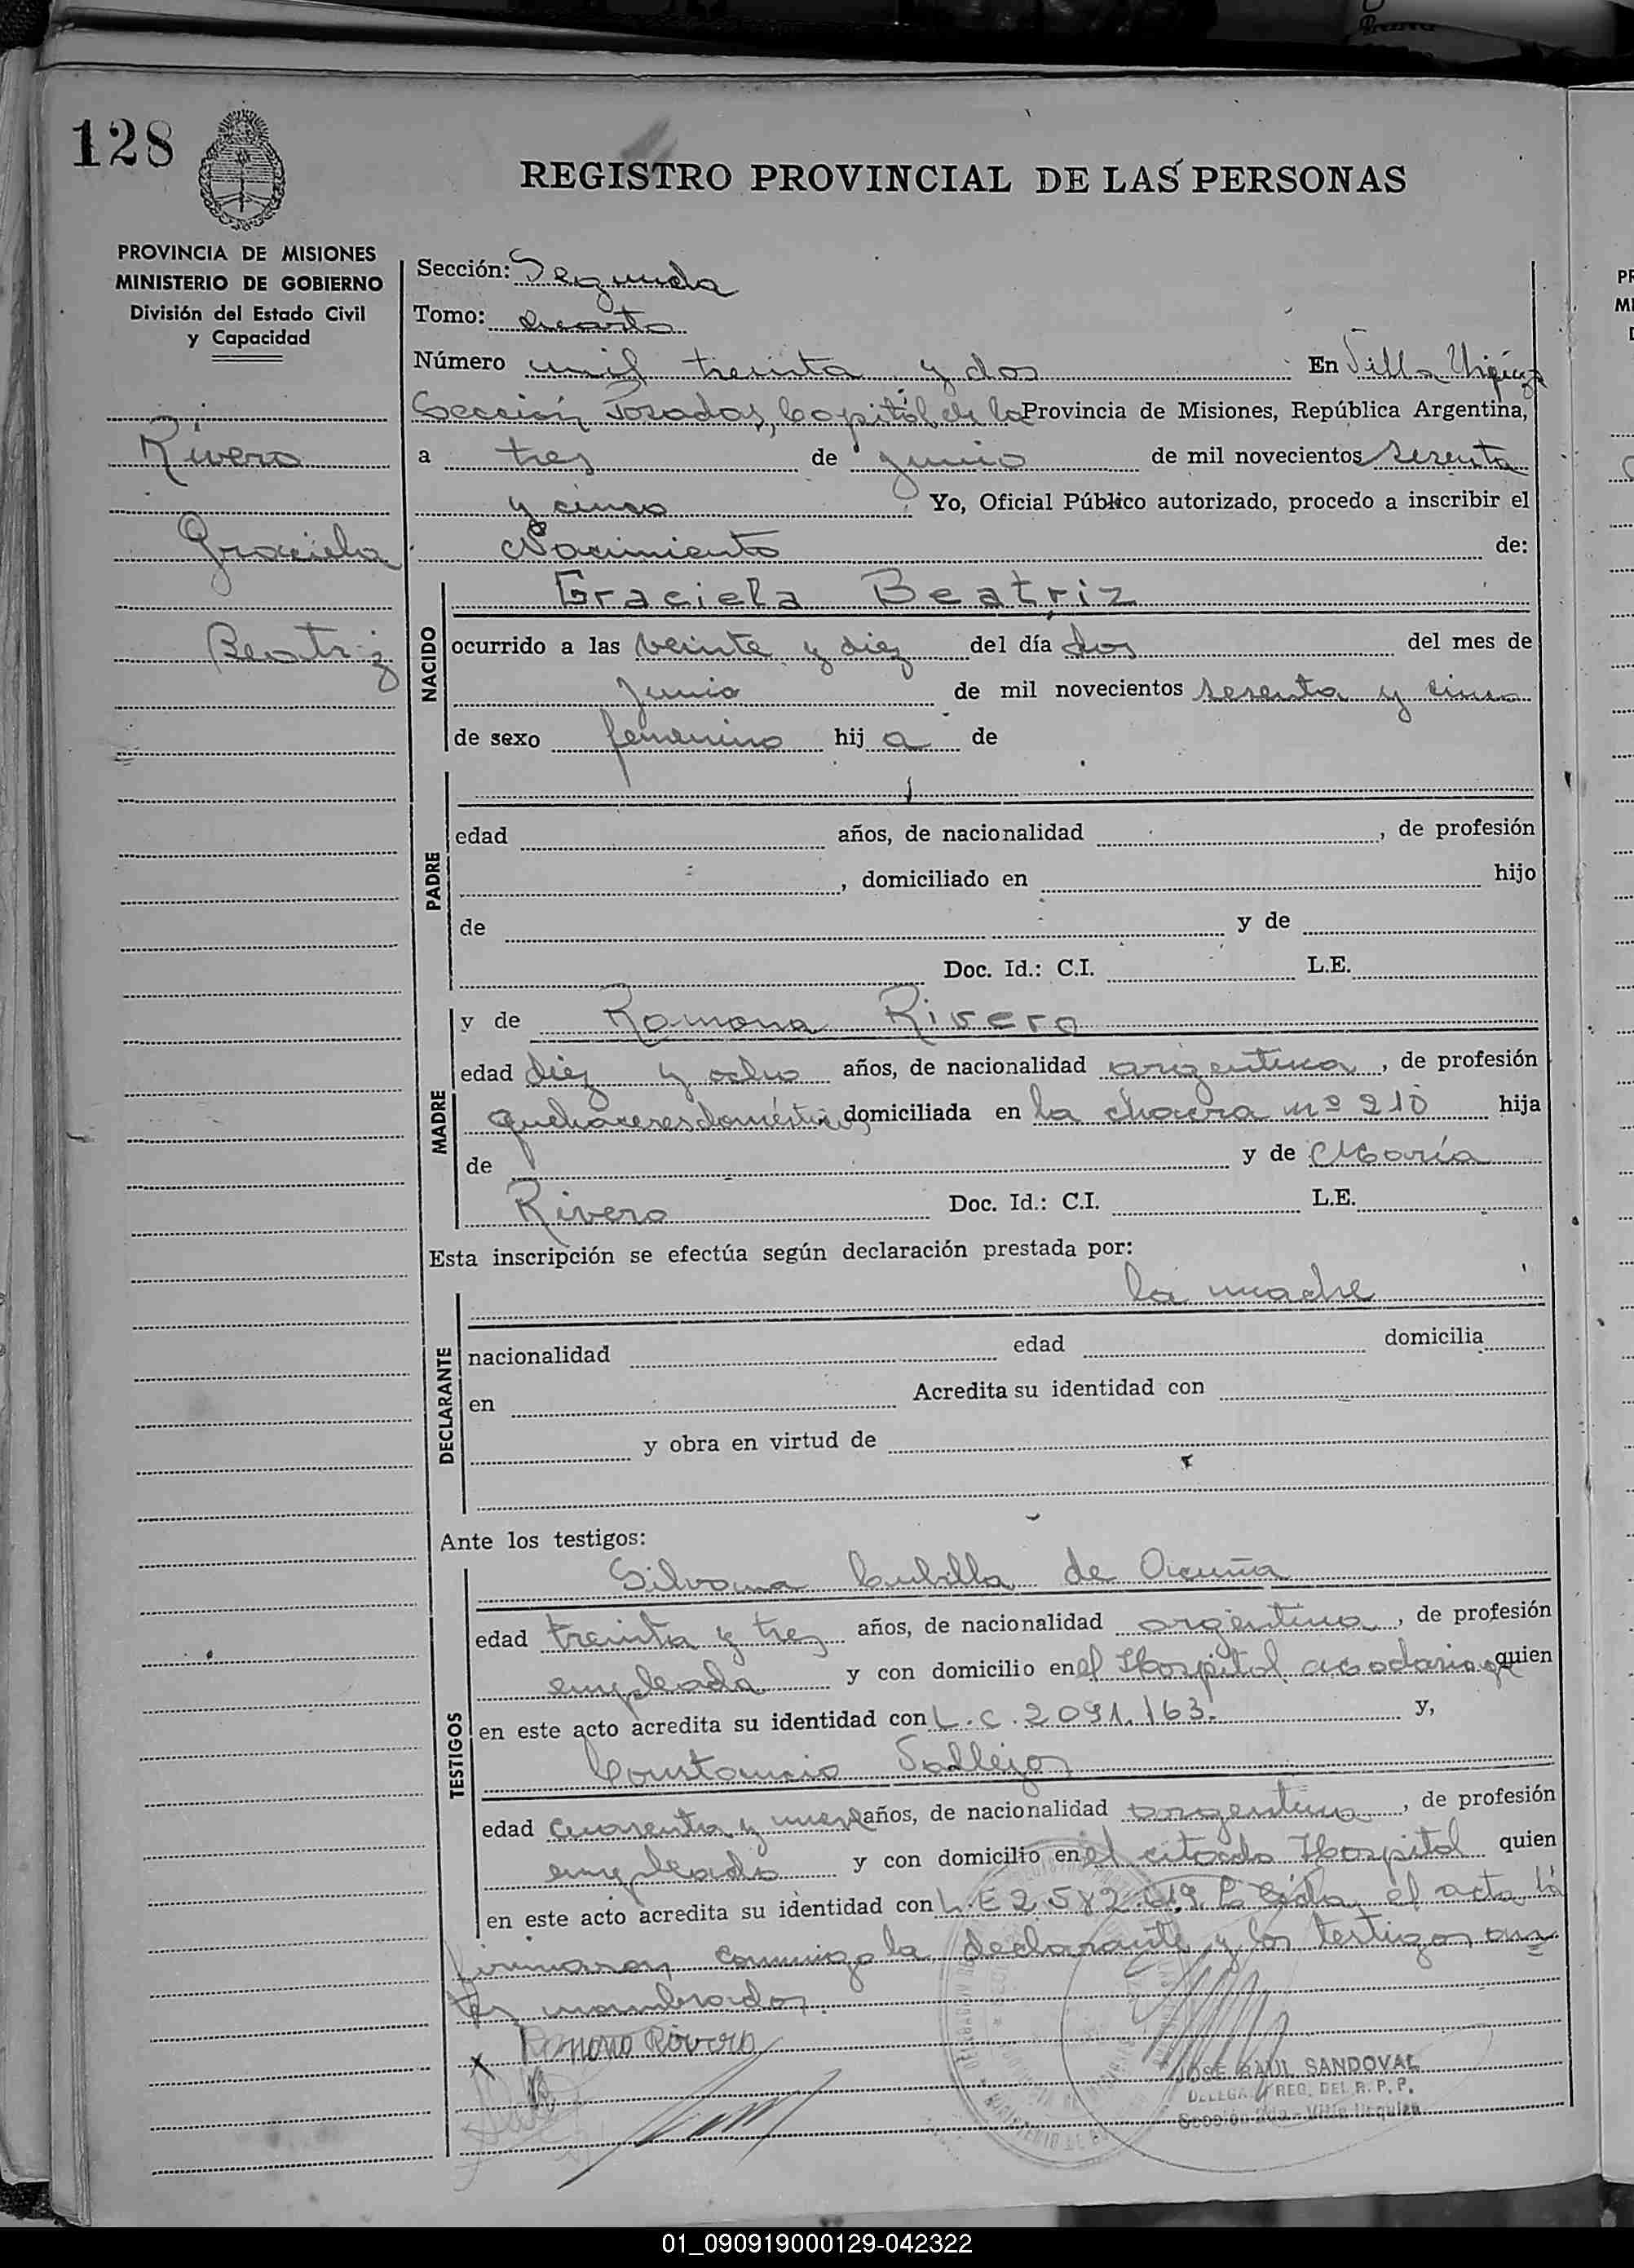 128
REGISTRO PROVINCIAL DE LAS PERSONAS
PROVINCIA DE MISIONES
MINISTERIO DE GOBIERNO
División del Estado Civil
y Capacidad
Rivero
Graciela
Beatriz
Sección: Segunda
Tomo: cuarto
Número mil treinta y dos En Villa Urquiza
Sección Posadas, Capital de la Provincia de Misiones, República Argentina,
a tres de junio de mil novecientos sesenta
y cinco Yo, Oficial Público autorizado, procedo a inscribir el
Nacimiento de:
NACIDO
Graciela Beatriz
ocurrido a las veinte y diez del día dos del mes de
junio de mil novecientos sesenta y cinco
de sexo femenino hij a de
PADRE
edad años, de nacionalidad , de profesión
, domiciliado en hijo
de y de
Doc. Id.: C.I. L.E.
MADRE
y de Ramona Rivero
edad diez y ocho años, de nacionalidad argentina, de profesión
quehaceres domésticos domiciliada en la chacra nº 210 hija
de y de María
Rivero Doc. Id.: C.I. L.E.
Esta inscripción se efectúa según declaración prestada por:
la madre
DECLARANTE
nacionalidad edad domicilia
en Acredita su identidad con
y obra en virtud de
Ante los testigos:
TESTIGOS
Silvana Cubilla de Acuña
edad treinta y tres años, de nacionalidad argentina, de profesión
empleada y con domicilio en el Hospital quien
en este acto acredita su identidad con L.C. 2091.163. y,
Constancio Vallejos
edad cuarenta y nueve años, de nacionalidad argentina, de profesión
empleado y con domicilio en el citado Hospital quien
en este acto acredita su identidad con L.E 2.582.619 Leída el acta la
firmaron conmigo la declarante y los testigos an
tes nombrados.
x Ramona Rivero
JOSE RAUL SANDOVAL
DELEGA REG. DEL R. P. P.
Sección 2da - Villa Urquiza
01_090919000129-042322